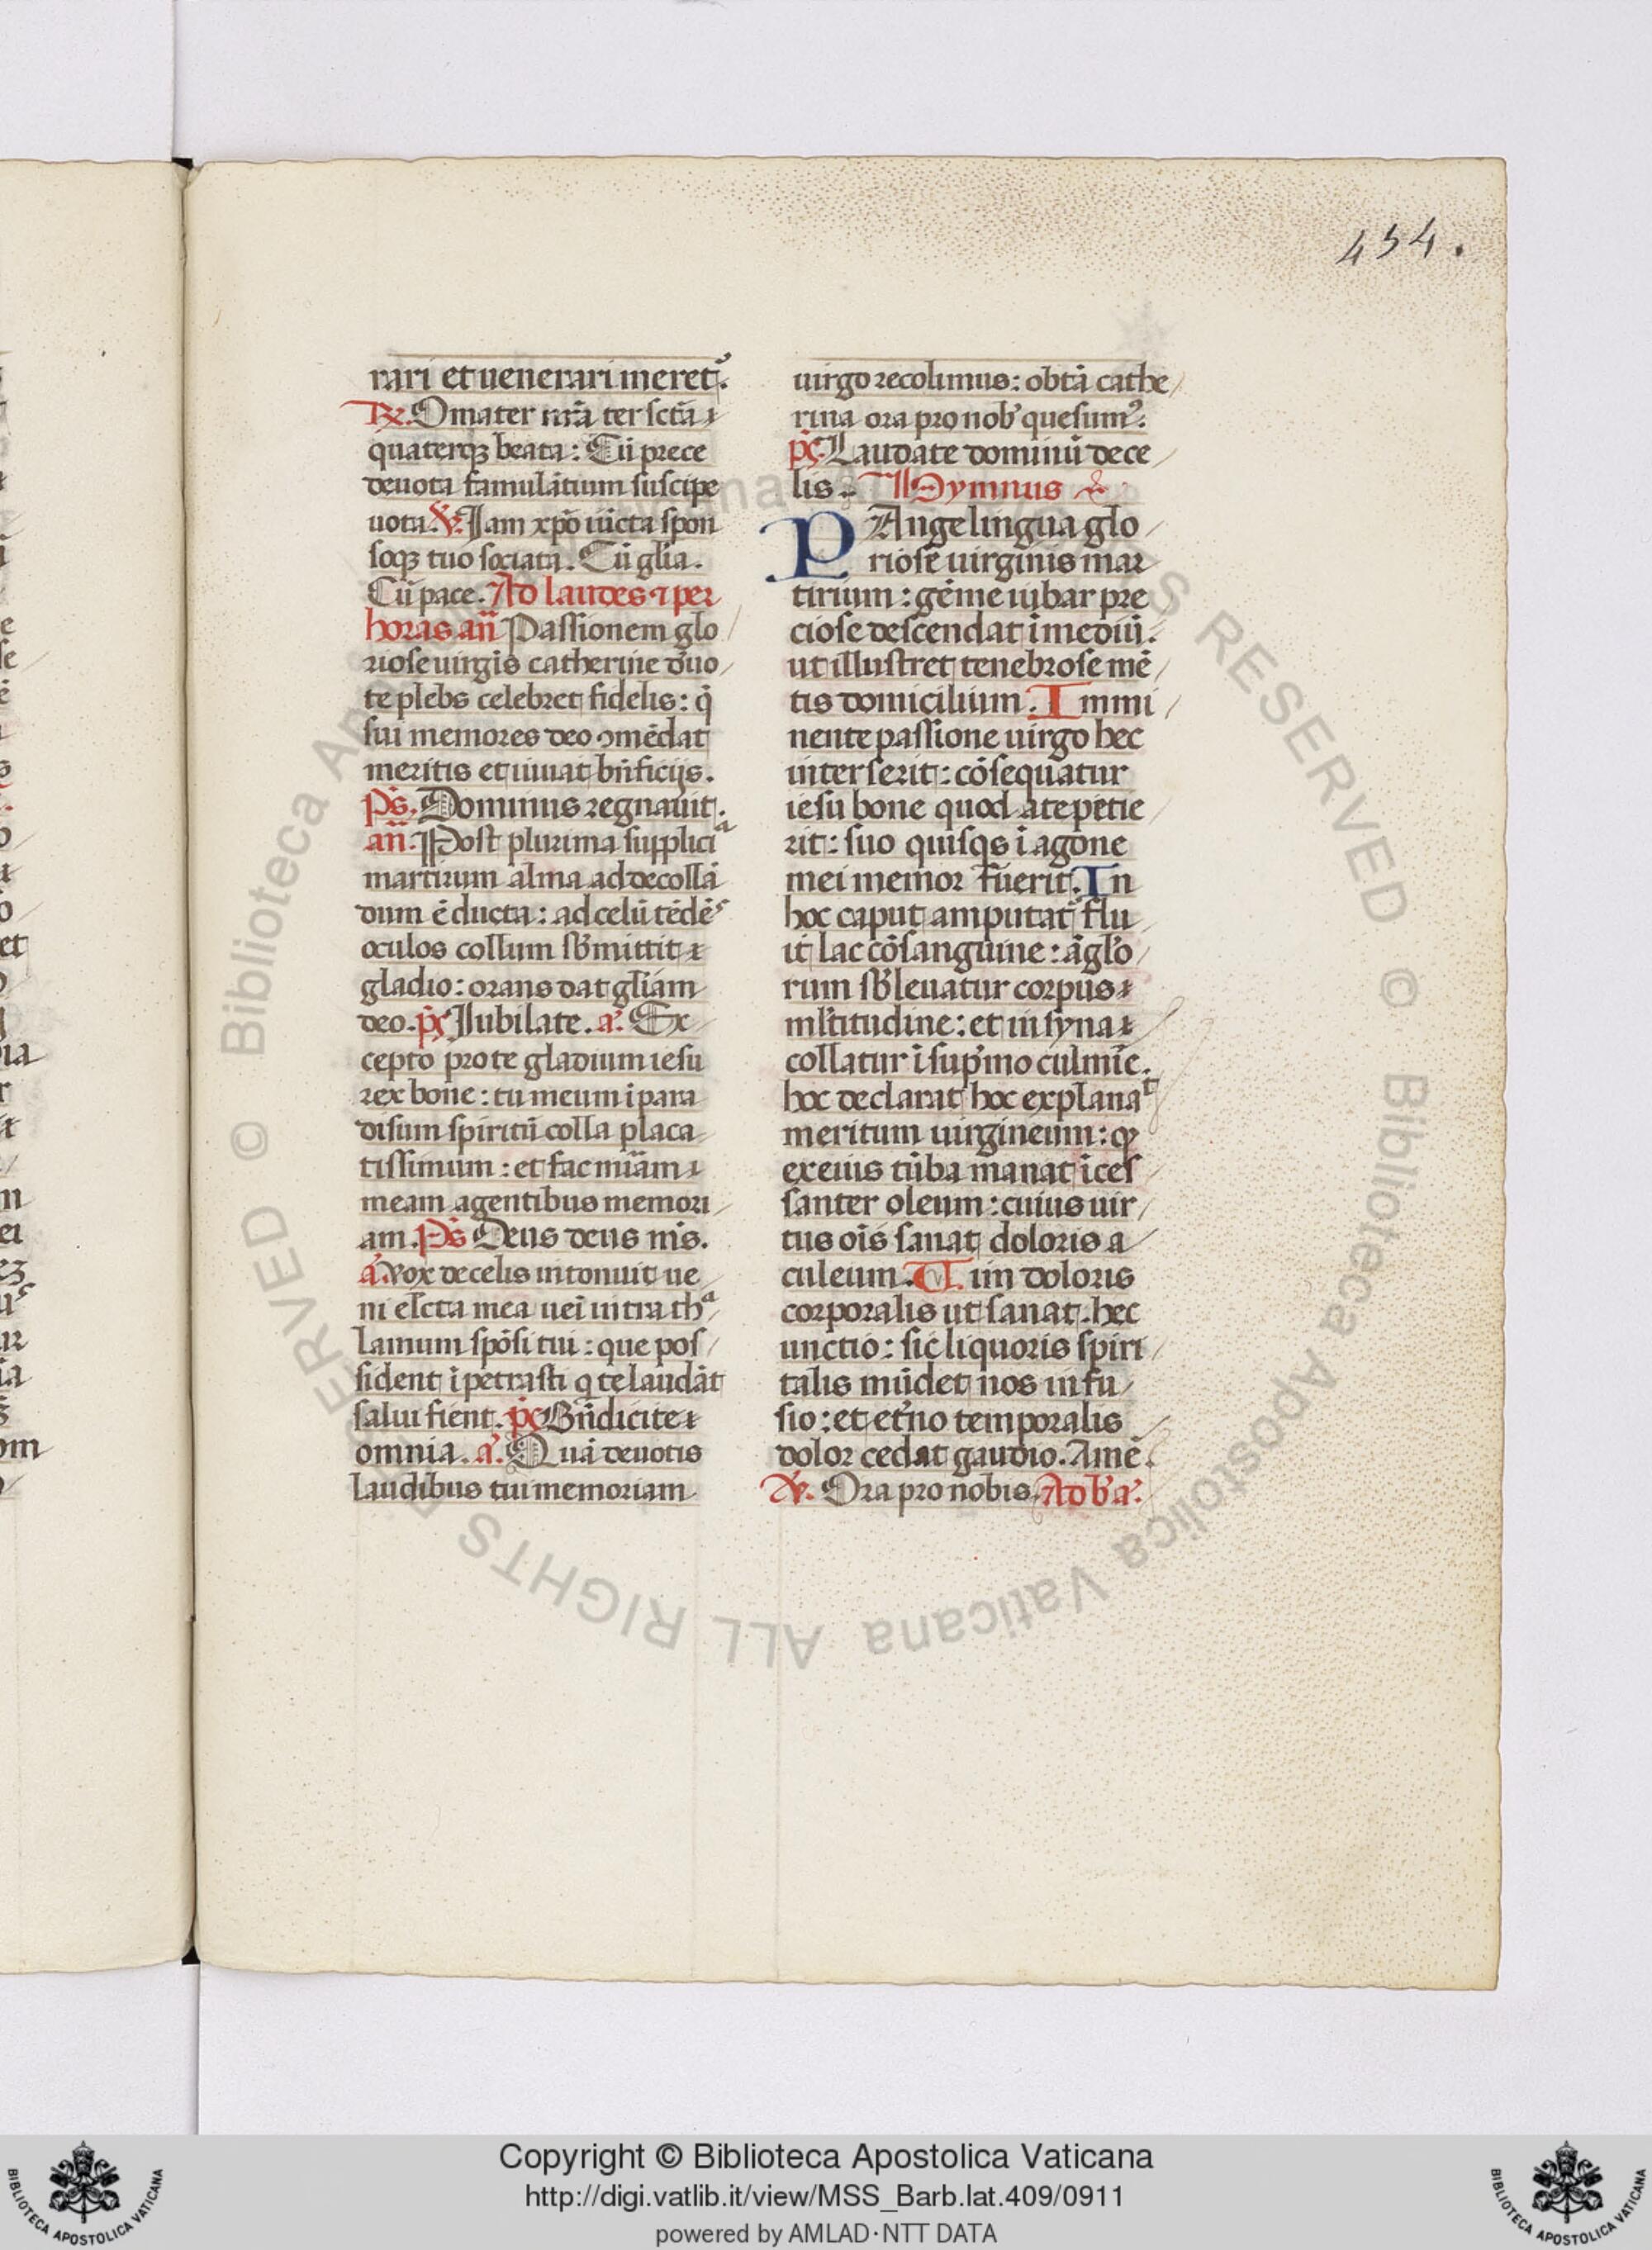 454.
rari et uenerari meret᷒.
℟. O mater nr̄a ter sctā
quaterqꝫ beata: Cū prece
deuota famulātium suscipe
uota. ℣. Iam xp̄o iūcta spon
soqꝫ tuo sociata. Cū glīa.
Cū pace. Ad laudes ⁊ per
horas añ Passionem glo
riose uirgīs catherine d̓uo
te plebs celebret fidelis: q̇
sui memores deo ꝯmēdat
meritis et iuuat bn̄ficijs.
Ps̄. Dominus regnauit.
añ. Post plurima supplicia
martirum alma ad decollā
dum ē ducta: ad celū tēdēs
oculos collum sb̓mittit
gladio: orans dat gl̄iam
deo. ps̄ Iubilate. a᷒. Ex
cepto pro te gladium iesu
rex bone: tu meum ī para
disum spiritū colla placa
tissimum: et fac miām
meam agentibus memori
am. Ps̄ Deus deus m̄s.
a᷒. vox de celis intonuit ue
ni elcta mea ueī intra tha
lamum spōsi tui: que pos
sident īpetrasti q̇ te laudāt
salui fient. ps̄ Bn̄dicite
omnia. a᷒. Quā deuotis
laudibus tui memoriam
uirgo recolimus: obtā cathe
rina ora pro nob̓ quesum᷒.
ps̄. Laudate dominū de ce
lis. Hymnus
PAnge lingua glo
riosē uirginis mar
tirium: gēme iubar pre
ciose descendat ī mediū.
ut illustret tenebrose mē
tis domicilium. Immi
nente passione uirgo hec
interserit: cōsequatur
iesu bone quod a te petie
rit: suo quisqs ī agone
mei memor fuerit. In
hoc caput amputat᷒ flu
it lac cō sanguine: āglo
rum sb̓leuatur corpus
ml̓titudine: et in syna
collatur ī sup̓mo culmīe.
hoc declarat hoc explanat
meritum uirgineum: qꝫ
ex eius tūba manat īces
santer oleum: cuius uir
tus oīs sanat doloris a
culeum. Uim doloris
corporalis ut sanat hec
unctio: sic liquoris spiri
talis mūdet nos infu
sio: et et̓no temporalis
dolor cedat gaudio. Amē.
℣. Ora pro nobis. Ad b̓ a᷒.
Copyright © Biblioteca Apostolica Vaticana
http://digi.vatlib.it/view/MSS_Barb.lat.409/0911
powered by AMLAD·NTT DATA
© Biblioteca Apostolica Vaticana ALL RIGHTS RESERVED
BIBLIOTECA APOSTOLICA VATICANA
BIBLIOTECA APOSTOLICA VATICANA